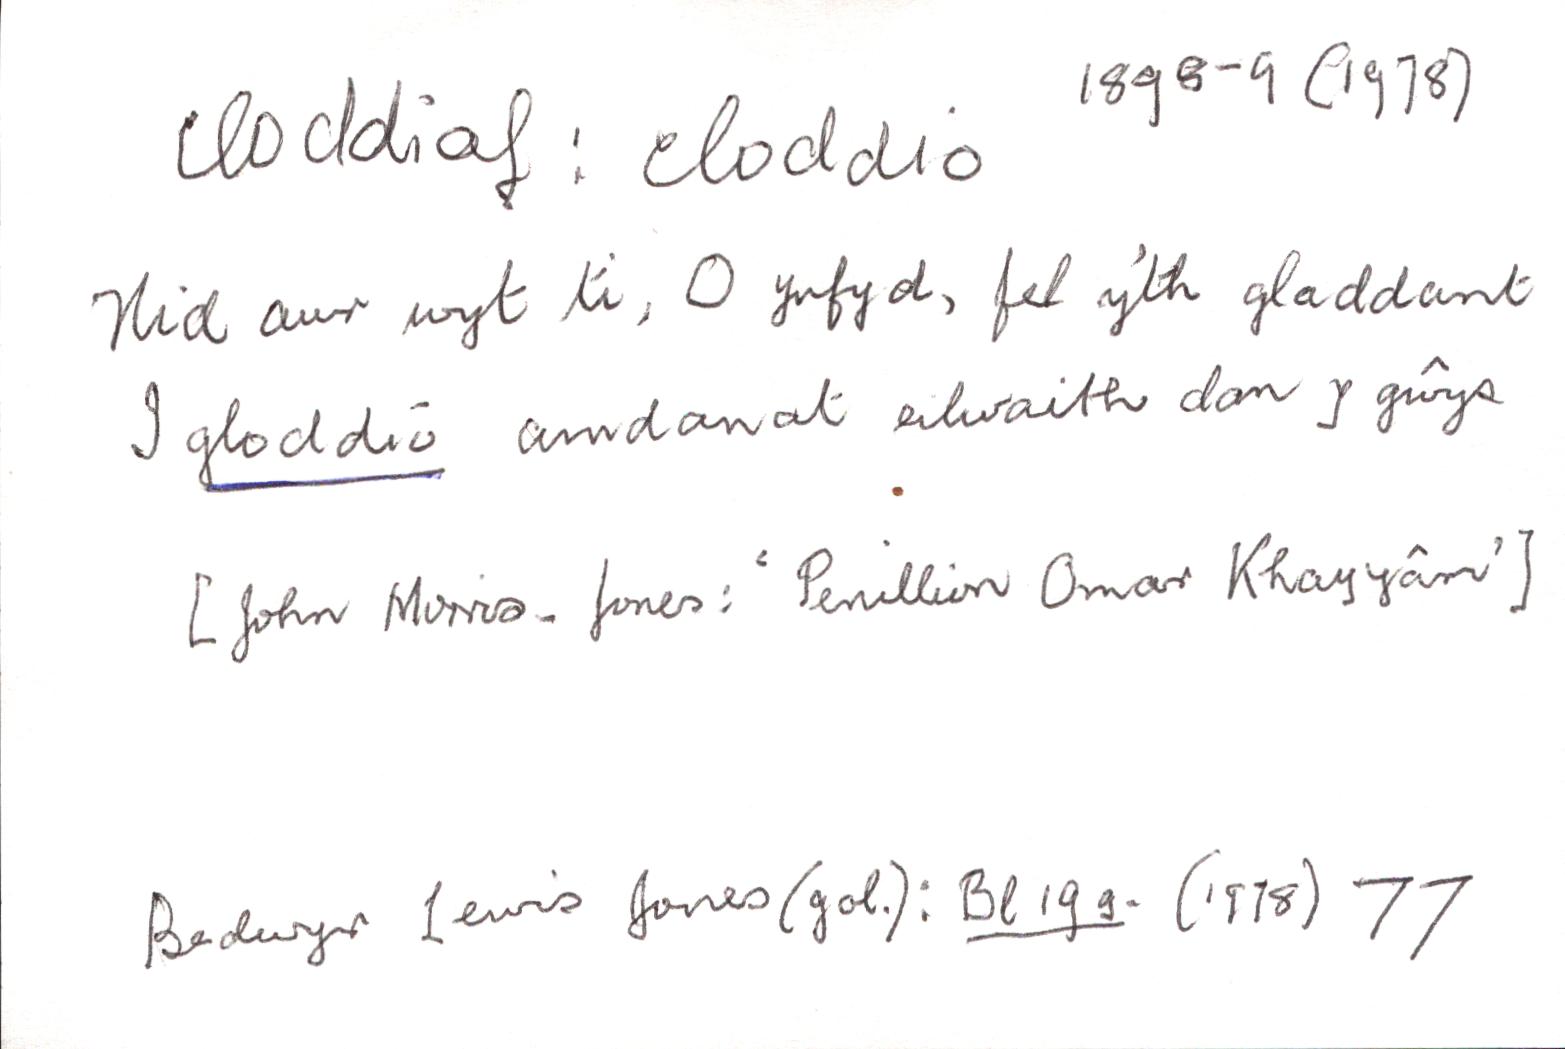 cloddiaf : cloddio 1898-9 (1978)
Nid aur wyt ti, O ynfyd, fel y'th gladdant
I gloddio amdanat eilwaith dan y gŵys
[John Morris-Jones: 'Penillion Omar Khayyâm']
Bedwyr Lewis Jones (gol.): Bl 19g. (1978) 77